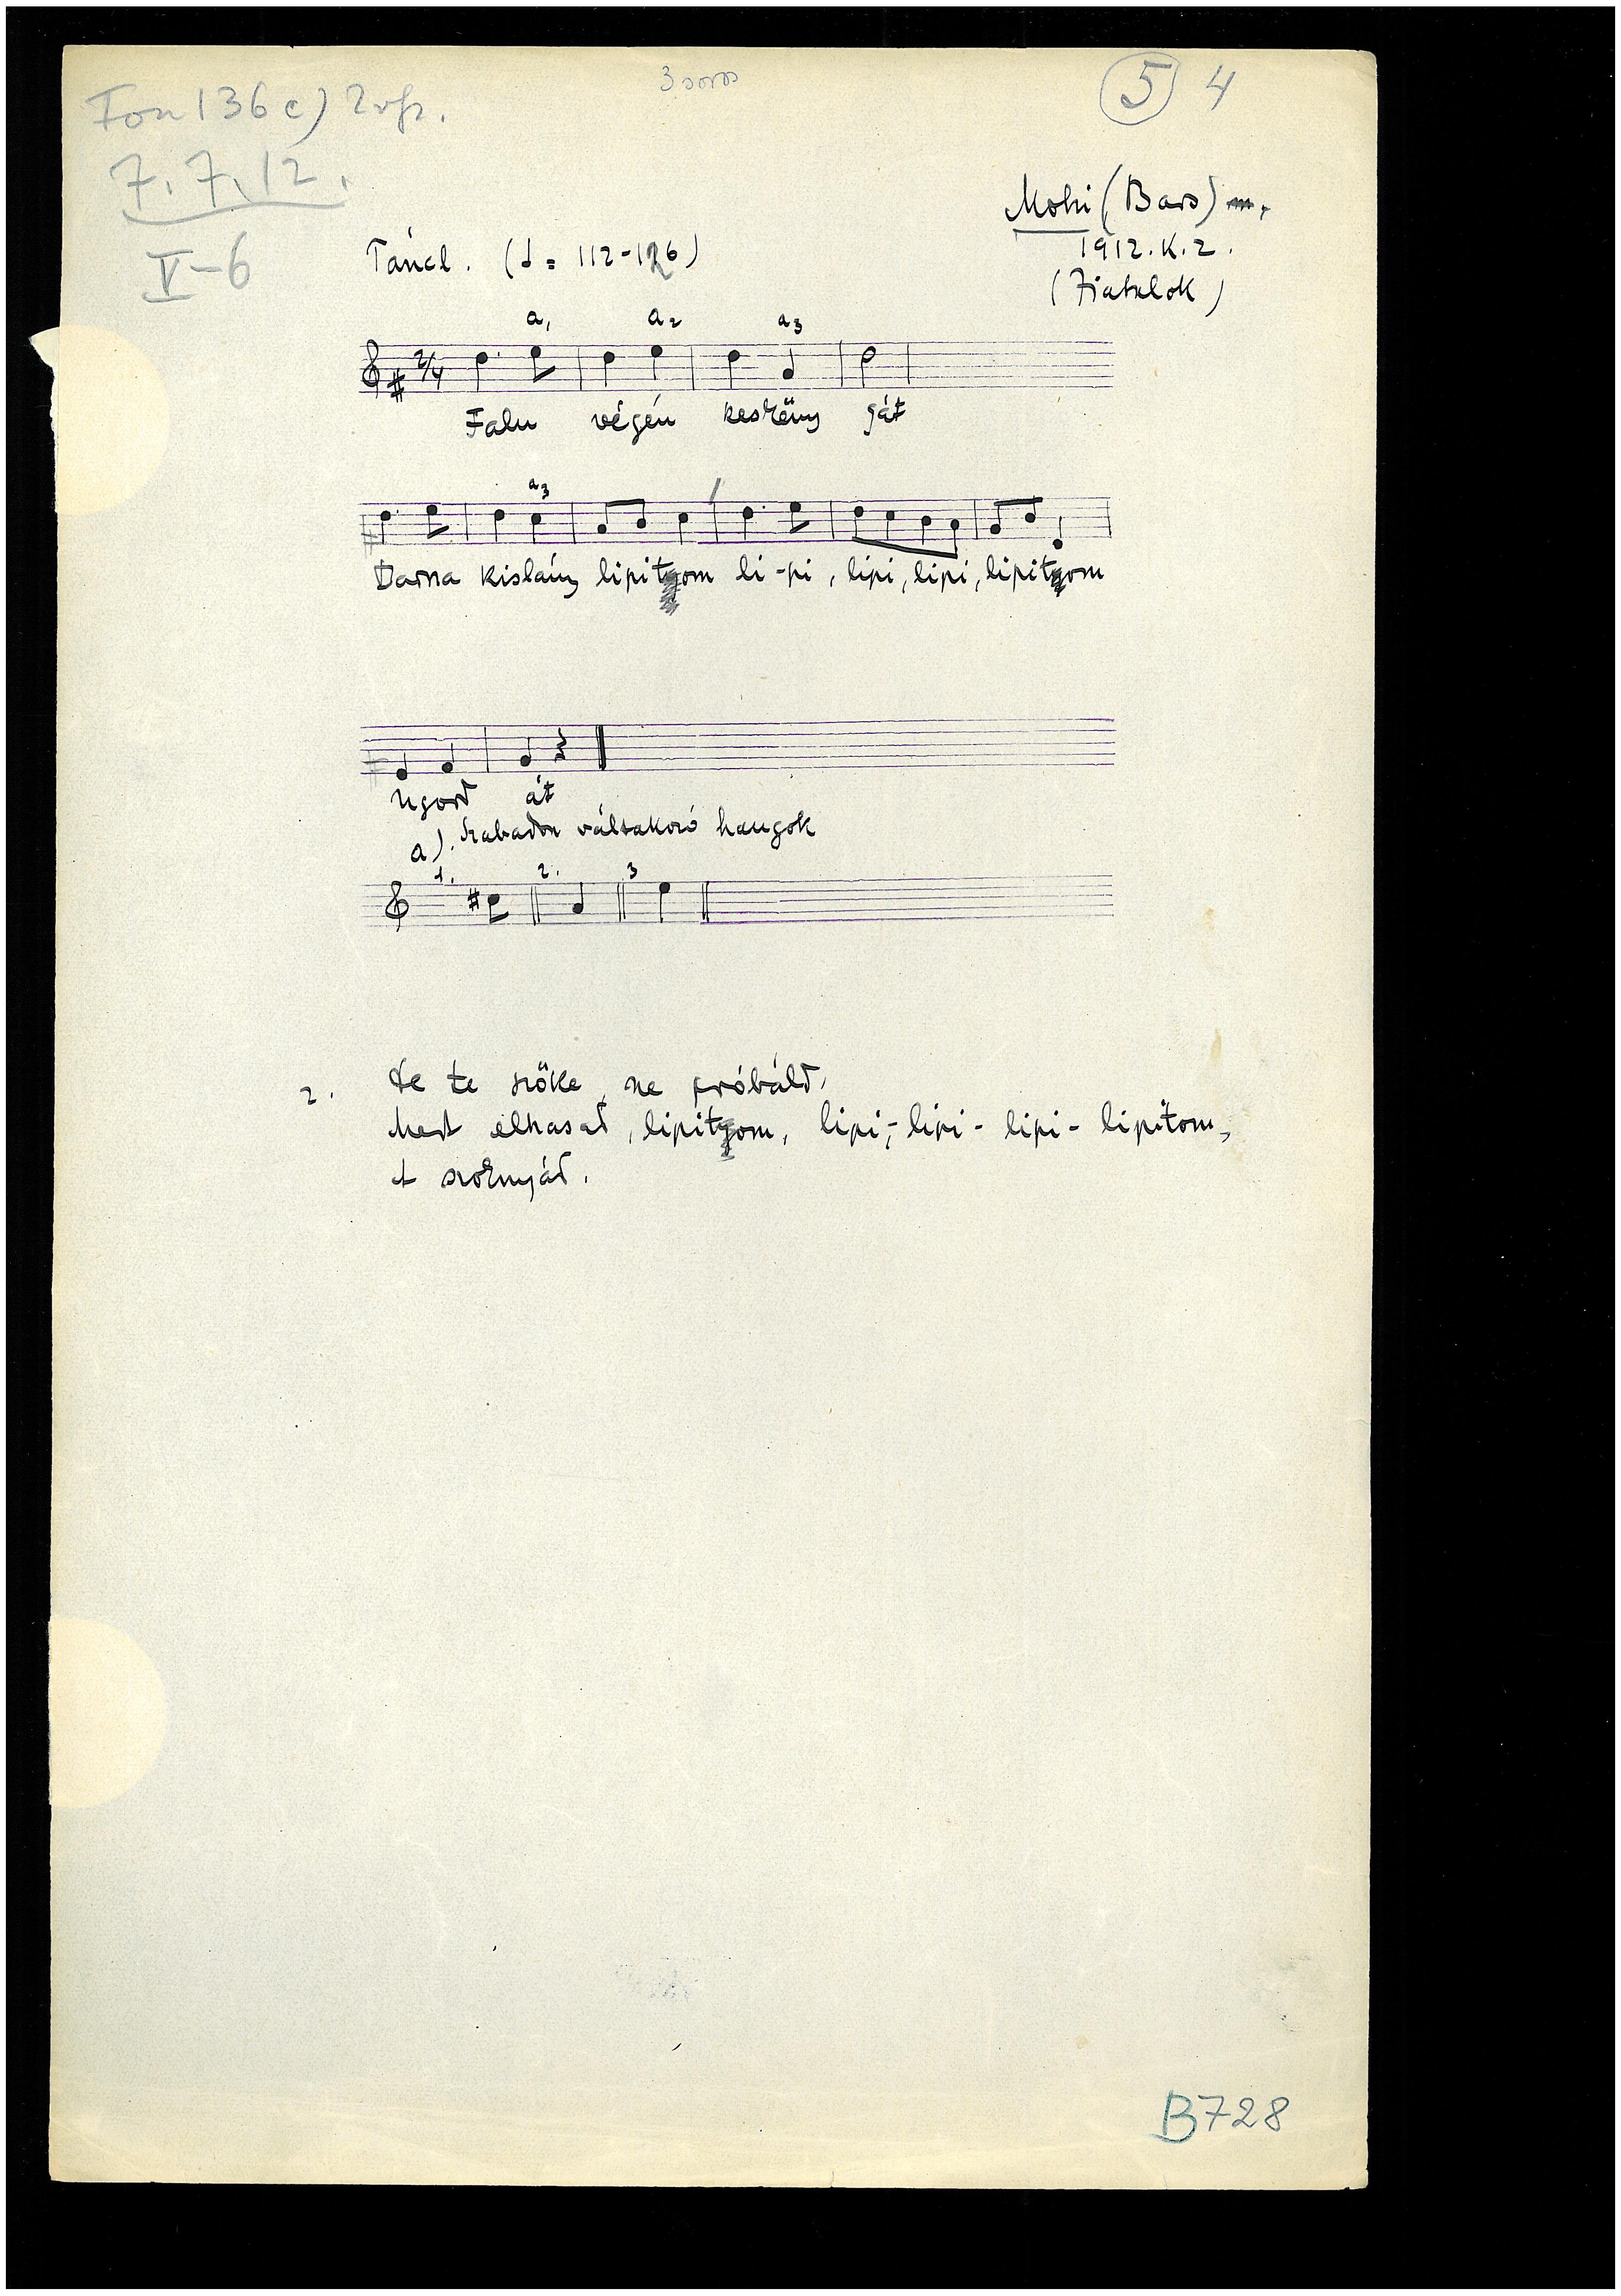 Fon 136 c) 2 vfr.
3 soros
5 4
7. 7. 12.
V-6
Mohi (Bars) m.
1912. K. Z.
(Fiatalok)
Táncl. (♩ = 112-126)
a1 a2 a3
2/4
Falu végén keskëny gát
a3
Barna kislány lipityom li-pi, lipi, lipi, lipityom
ugord át
a). Szabadon váltakozó hangok
1. 2. 3
2. De te szőke, ne próbáld,
Mert elhasad, lipityom, lipi,-lipi- lipi- lipitom,
A szoknyád.
B728